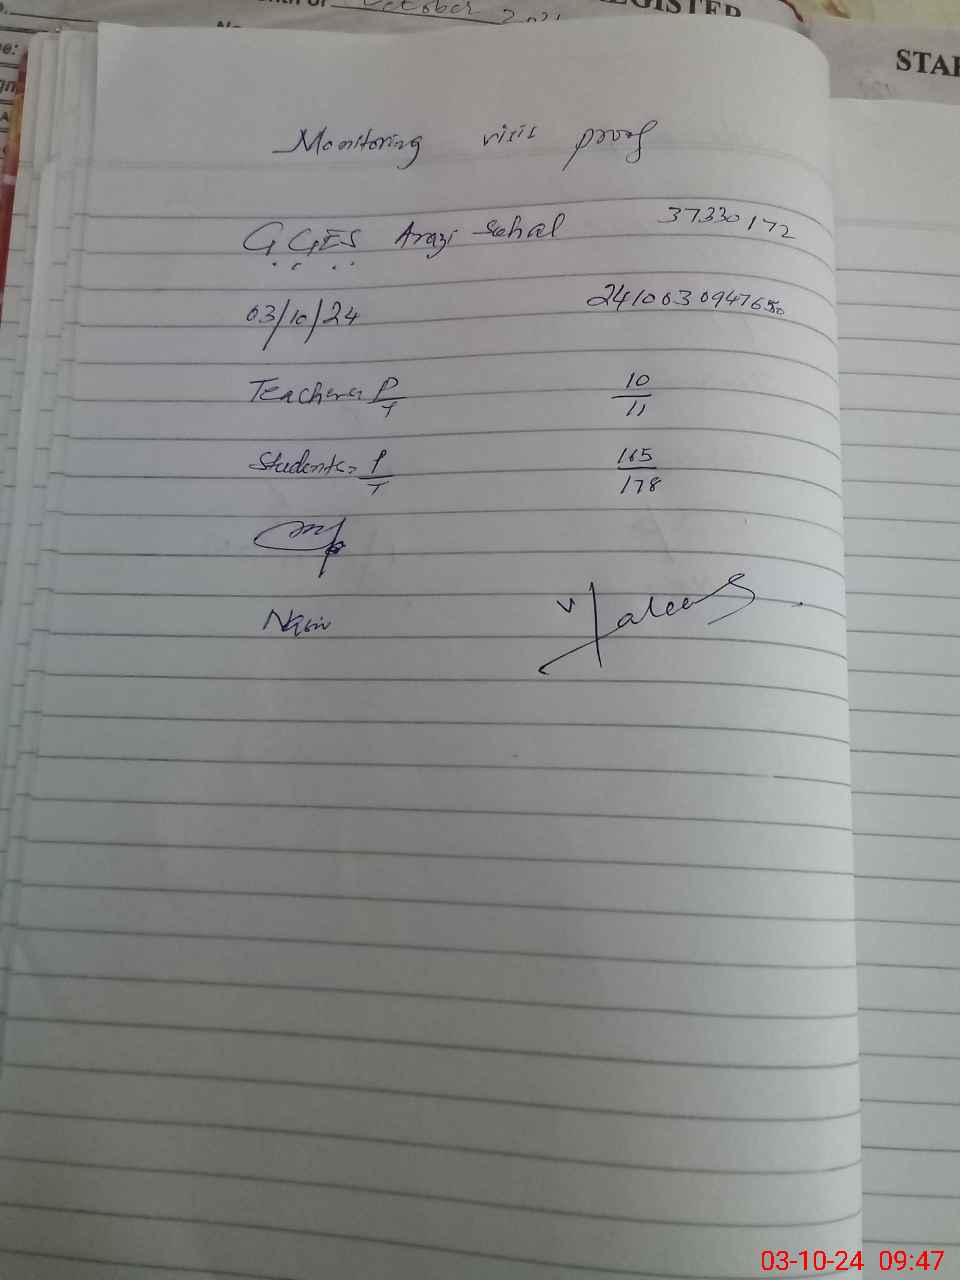 October 202
REGISTER
STAF
Monitoring visit proof
GGES Arazi Sehal 37330172
03/10/24 2410030947650
Teachers P/T 10/11
Students = P/T 165/178
03-10-24 09:47